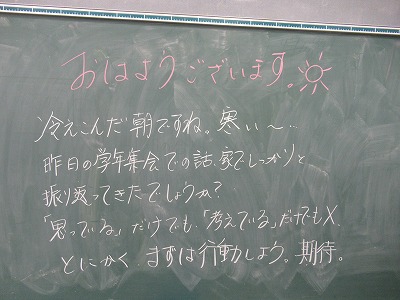 おはようございます。
冷えこんだ朝ですね。寒い～…
昨日の学年集会での話、家でしっかりと
振り返ってきたでしょうか？
「思っている」だけでも、「考えている」だけでも×、
とにかく、まずは行動しよう。期待。